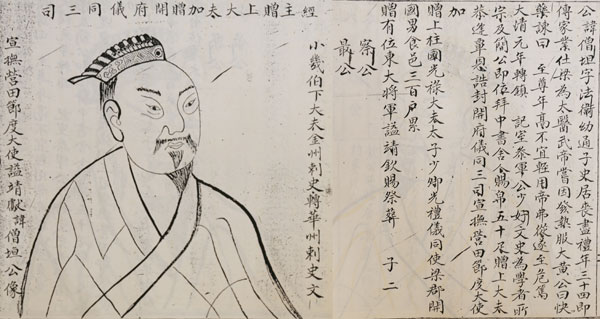 公諱僧垣字法衛幼通子史居喪盡禮年三十四即
傳家業仕梁為太醫武帝嘗因發熱服大黃公曰快
藥諫曰 至尊年高不宜輕用帝弗從遂至危篤
大清元年轉鎮 記室參軍公少好文史為學者所
宗及簡公即位拜中書舍會賜帛五十尺贈上大夫
恭逢單恩誥封開府儀同三司宣撫營田節度大使
加
贈上柱國光祿大夫太子少卿光禮儀同使梁郡開
國男食邑三百戶累
贈有位東大將軍謚靖欽賜祭葬 子二
察公
最公
經主贈上大夫加贈開府儀同三司
小畿伯下大夫金州刺史轉華州刺史文
宣撫營田節度大使謚靖獻諱僧垣公像